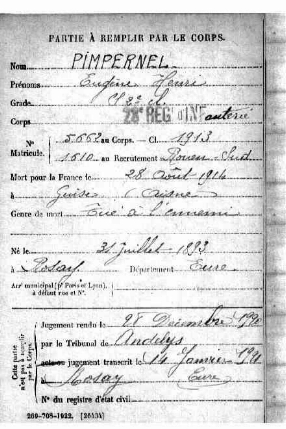 PARTIE À REMPLIR PAR LE CORPS.
Nom PIMPERNEL
Prénoms Eugène Henri
Grade 2e cl.
Corps 28e REG d'INFanterie
N° 5662 au Corps. — Cl. 1913
Matricule. 1510 au Recrutement Rouen Sud
Mort pour la France le 28 Août 1914
à Guise (Aisne)
Genre de mort Tué à l'ennemi
Né le 31 juillet 1893
à Rosay Département Eure
Arrt municipal (pr Paris et Lyon),
à défaut rue et N°.
Cette partie
n'est pas à remplir
par le Corps.
Jugement rendu le 28 Décembre
par le Tribunal de Andelys
jugement transcrit le 14 Janvier
à Rosay (Eure)
N° du registre d'état civil
269-708-1922. [26434]